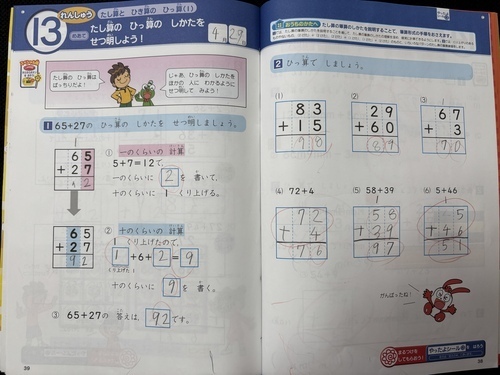 13
れんしゅう
たし算と ひき算の ひっ算(1)
めあて
たし算の ひっ算の しかたを
せつ明しよう!
4月29日
たし算の ひっ算は
ばっちりだよ!
じゃあ、ひっ算の しかたを
ほかの 人に わかるように
せつ明して みよう!
1 65+27の ひっ算の しかたを せつ明しましょう。
1
65
+27
12
① 一のくらいの 計算
5+7=12で、
一のくらいに 2 を 書いて、
十のくらいに 1 くり上げる。
65
+27
92
② 十のくらいの 計算
1 くり上げたので、
1+6+2=9
くり上げた1
十のくらいに 9 を 書く。
③ 65+27の 答えは、92です。
39
おうちのかたへ
2 ひっ算で しましょう。
(1)
83
+15
98
(2)
29
+60
89
(3)
1
67
+3
70
(4) 72+4
72
+4
76
(5) 58+39
1
58
+39
97
(6) 5+46
1
5
+46
51
がんばったね!
まるつけを
してもらおう!
やったよシール を はろう